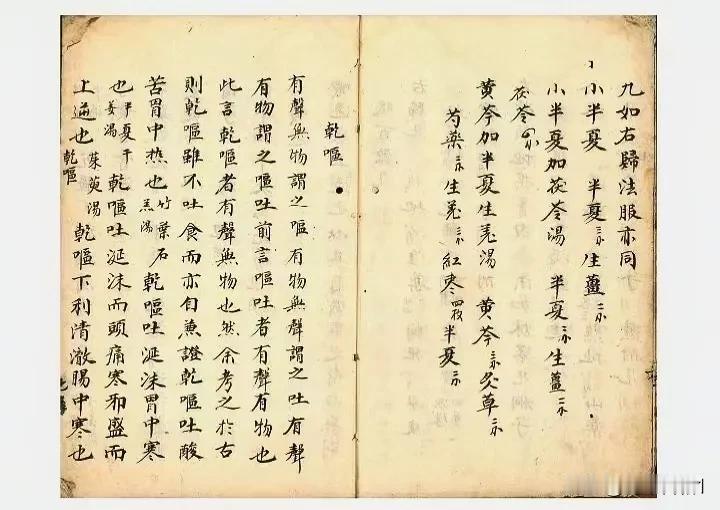 九如右歸法服亦同
小半夏 半夏 生薑
小半夏加茯苓湯 半夏 生薑
茯苓
黄芩加半夏生羗湯 黄芩 炙草
芍藥 生羗 紅枣四枚 半夏
乾嘔
有聲無物謂之嘔有物無聲謂之吐有聲
有物謂之嘔吐前言嘔吐者有聲有物也
此言乾嘔者有聲無物也然余考之於古
則乾嘔雖不吐食而亦自兼證乾嘔吐酸
苦胃中热也竹葉石羔湯 乾嘔吐涎沫胃中寒
也半夏干姜湯 乾嘔吐涎沫而頭痛寒邪盛而
上逆也茱萸湯 乾嘔下利清澈腸中寒也
乾嘔